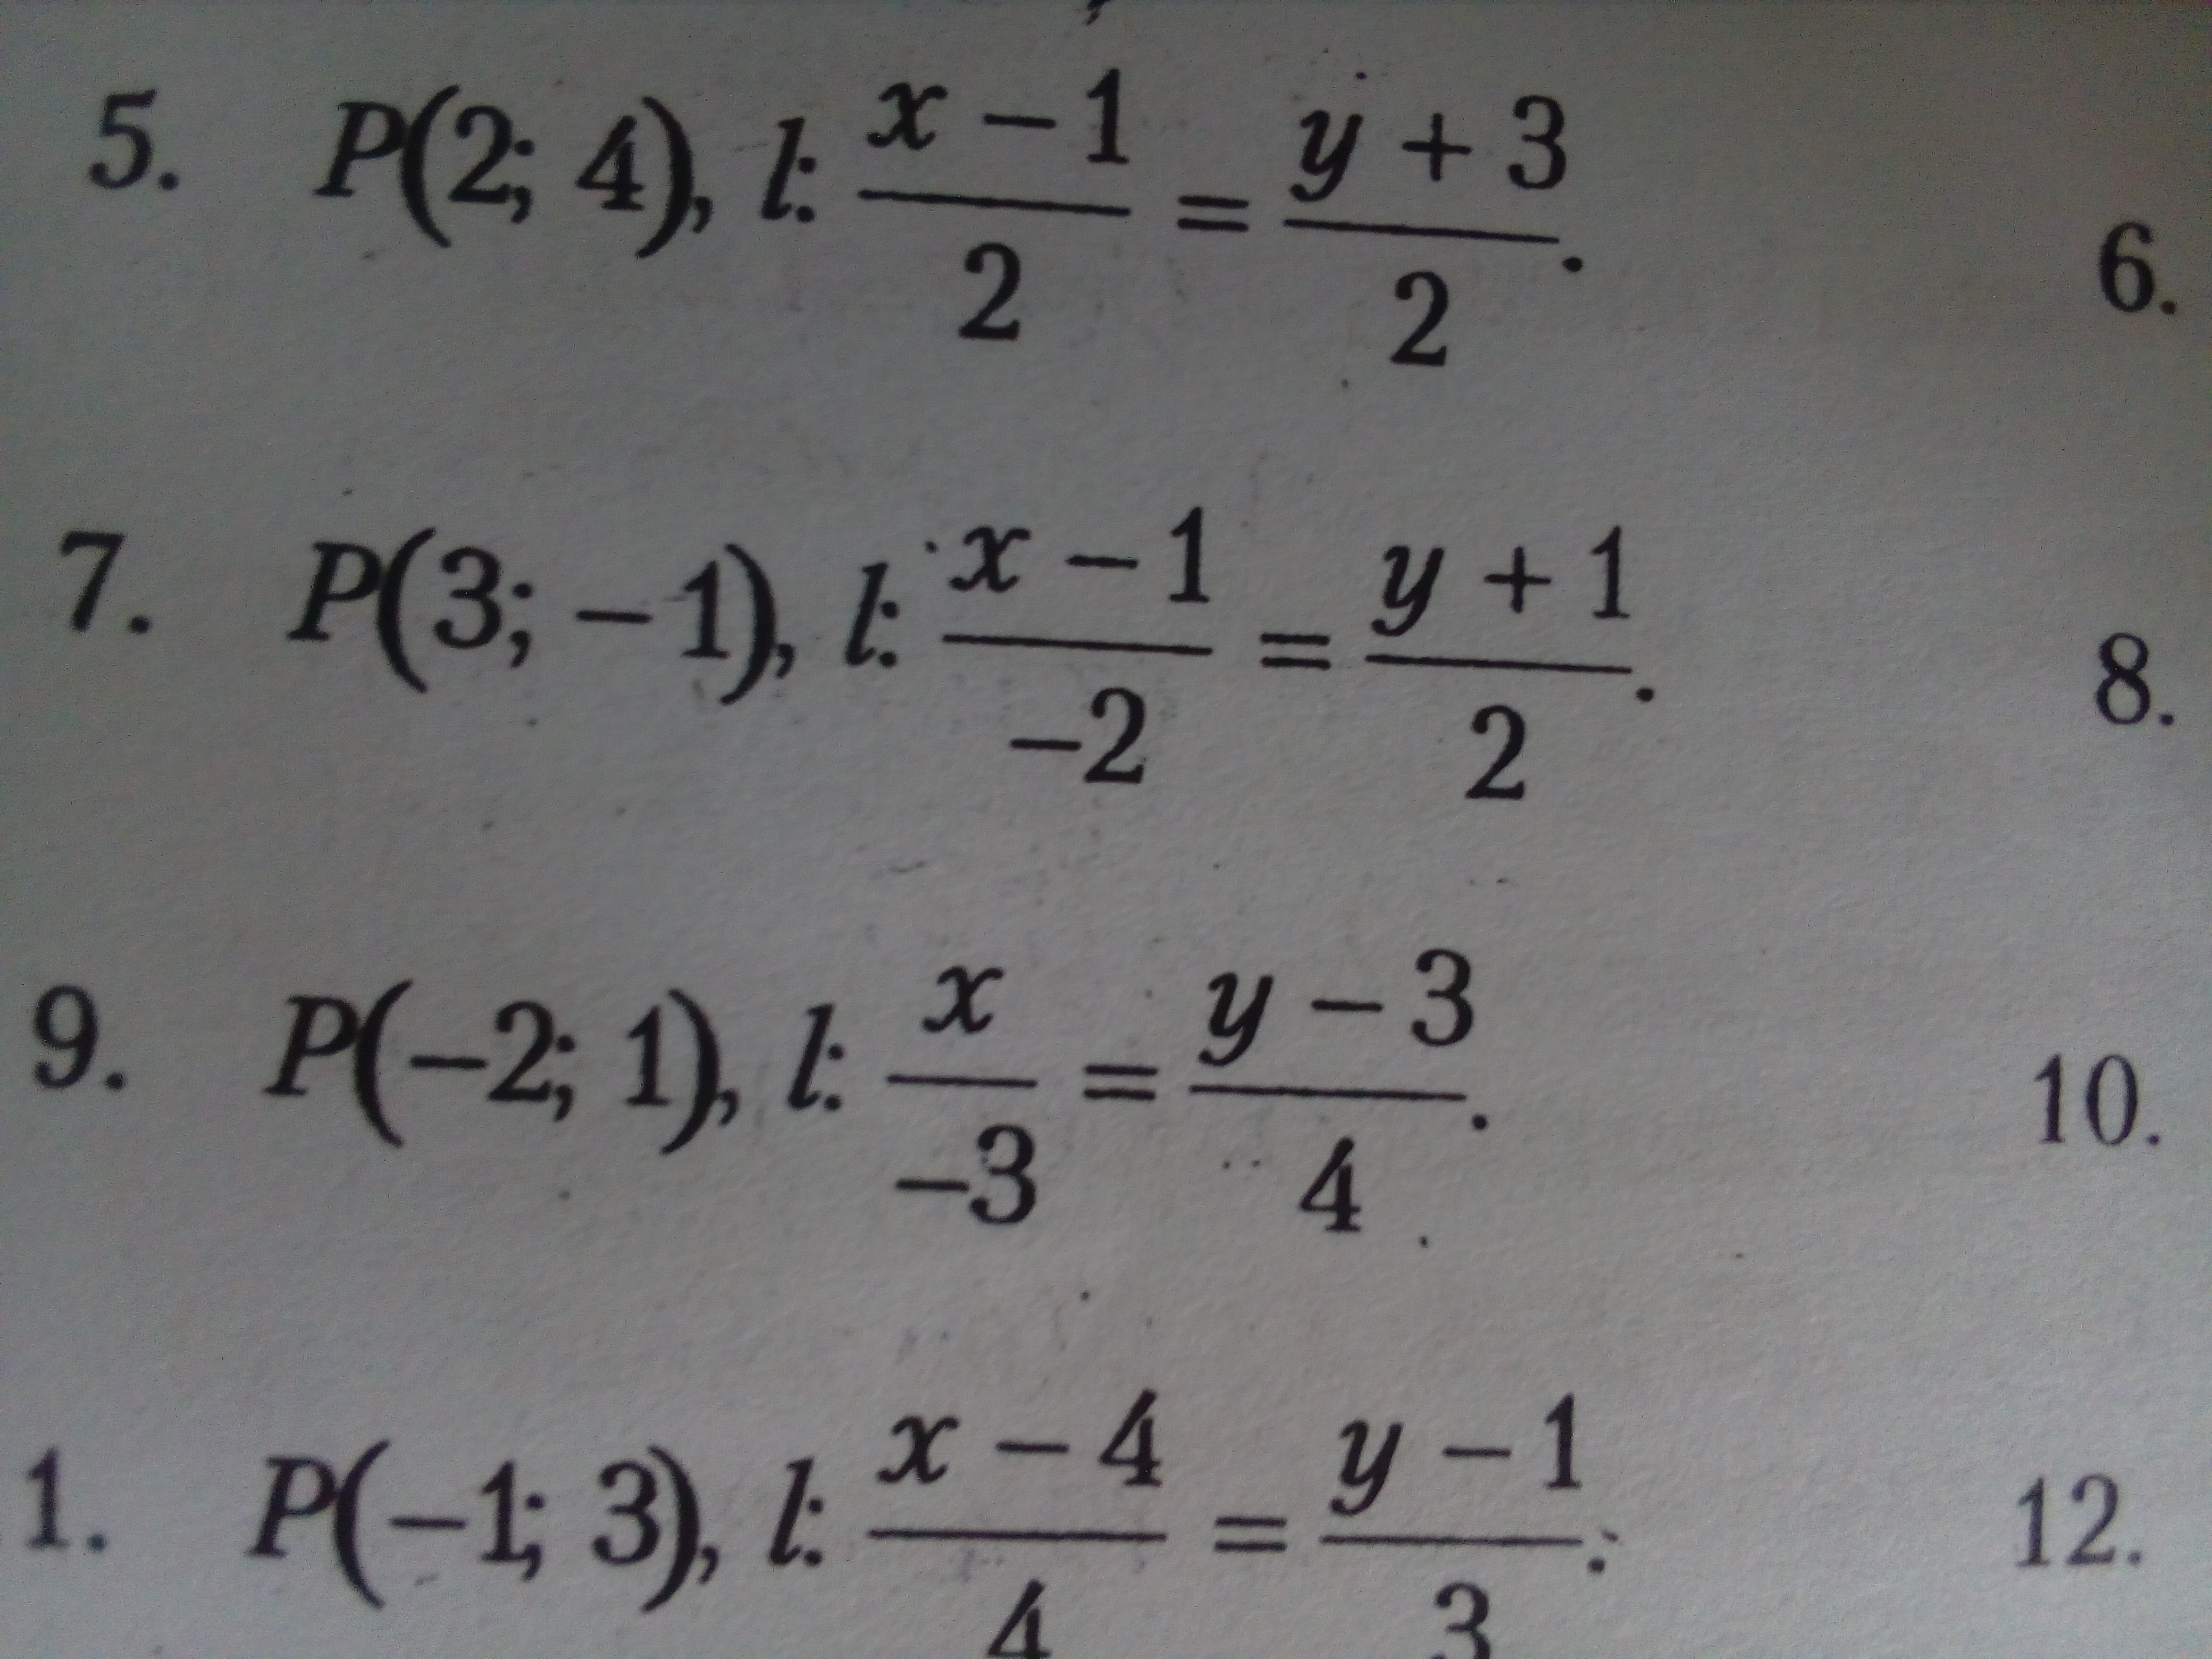 5. P(2; 4), l: (x − 1)/2 = (y + 3)/2.
6.
7. P(3; −1), l: (x − 1)/−2 = (y + 1)/2.
8.
9. P(−2; 1), l: x/−3 = (y − 3)/4.
10.
1. P(−1; 3), l: (x − 4)/4 = (y − 1)/3.
12.